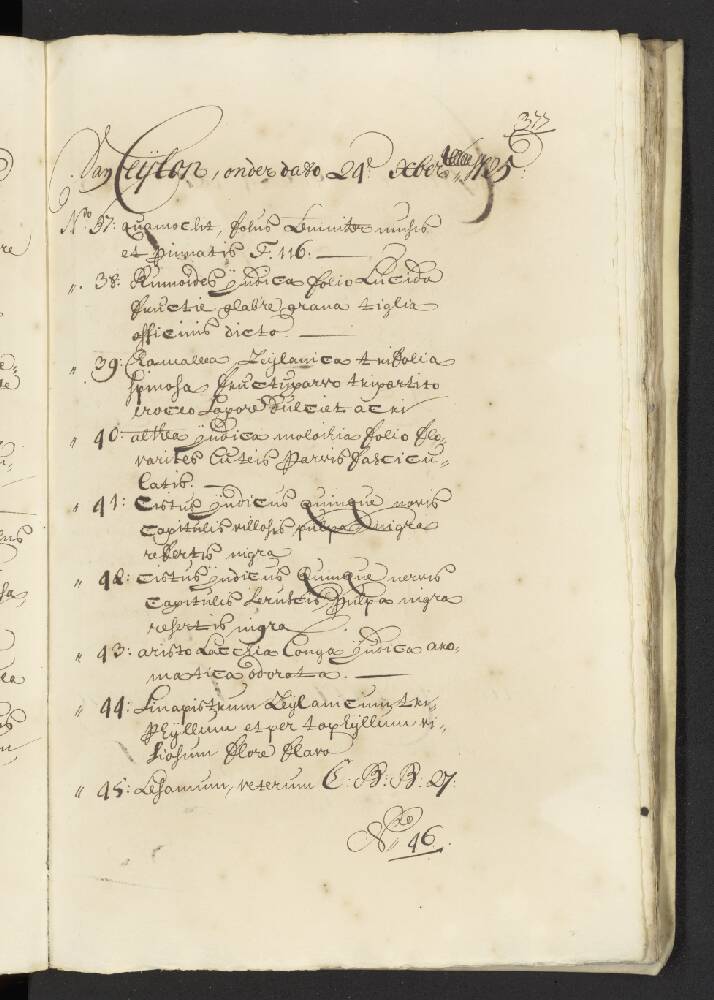 377
Van Ceijlon, onder dato 24e. xber 1725
No. 37: quamoclit, folus
et pinnatis F. 116.
„ 38: Ricinoides jndica folio Lucido
fructie glabre grana tiglia
officinis dicto
„ 39: Ramalla Zeijlanica trifolia
spinosa fructuparvo tripartito
croceo Sapore dulciet acri
„ 40: althea jndica folio flo„
varites luteis parvis fascicu„
latis.
„ 41: Cistus jndicus quinque nervis
Capitulis villosis pulpa nigra
refertis nigra
„ 42: Cistus jndicus Quinque nervis
Capitulis pulpa nigra
refertis nigra
„ 43: aristo Lochia Longa jndica aro„
matica odorata.
„ 44: Sinapistrum Zeijlanicum tri„
phijllum et per taphijllum vi„
flore flavo
„ 45: Sesamum, veterum C: B: P: 27:
No. 46.